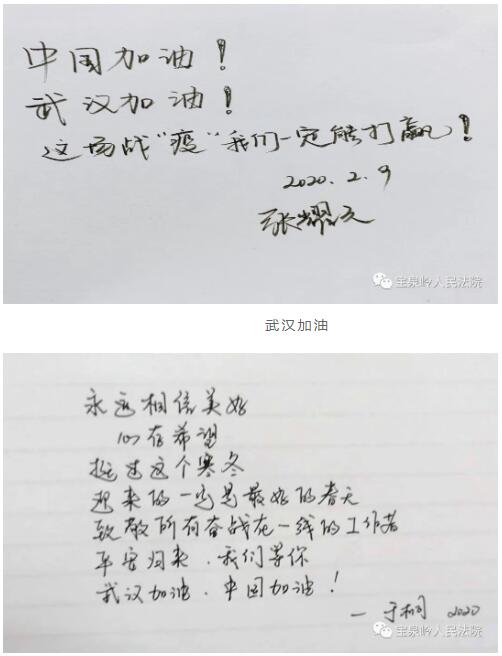 中国加油!
武汉加油!
这场战"疫"我们一定能打赢!
2020.2.9
张耀文
宝泉岭人民法院
武汉加油
永远相信美好
心存希望
挺过这个寒冬
迎来的一定是最好的春天
致敬所有奋战在一线的工作者
平安归来.我们等你
武汉加油.中国加油!
—于桐 2020
宝泉岭人民法院